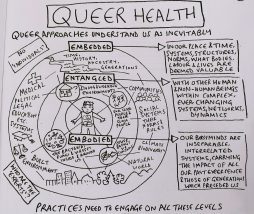 QUEER HEALTH
QUEER APPROACHES UNDERSTAND US AS INEVITABLY
EMBEDDED
IN OUR PLACE & TIME,
SYSTEMS, STRUCTURES,
NORMS, WHAT BODIES,
LABOUR & LIVES ARE
DEEMED VALUABLE
NO
INDIVIDUAL
TIME,
HISTORY,
ANCESTRY,
GENERATIONS
ENTANGLED
WITH OTHER HUMAN
& NON-HUMAN BEINGS
WITHIN COMPLEX,
EVER-CHANGING
SYSTEMS, NETWORKS,
DYNAMICS
MEDICAL
POLITICAL
LEGAL
EDUCATION
ETC.
SYSTEMS
COMMUNITY
SOCIAL
SYSTEMS
NORMS
RULES
EMBODIED
OUR BODYMINDS ARE
INSEPARABLE,
INTERRELATED
SYSTEMS, CARRYING
THE IMPACT OF ALL
OUR PAST EXPERIENCE
& THOSE OF GENERATIONS
WHICH PRECEDED US
BUILT
ENVIRONMENT
CLIMATE
NATURAL
WORLD
PRACTICES NEED TO ENGAGE ON ALL THESE LEVELS